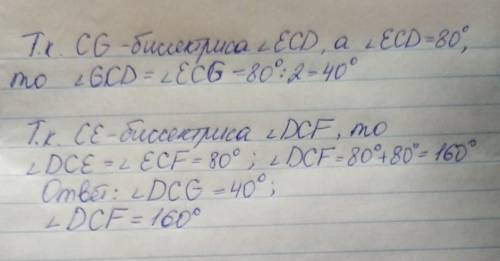 Т.к. CG -биссектриса ∠ECD, а ∠ECD=80°,
то ∠GCD=∠ECG=80°:2=40°
Т.к. CE-биссектриса ∠DCF, то
∠DCE=∠ECF=80°; ∠DCF=80°+80°=160°
Ответ: ∠DCG=40°;
∠DCF=160°